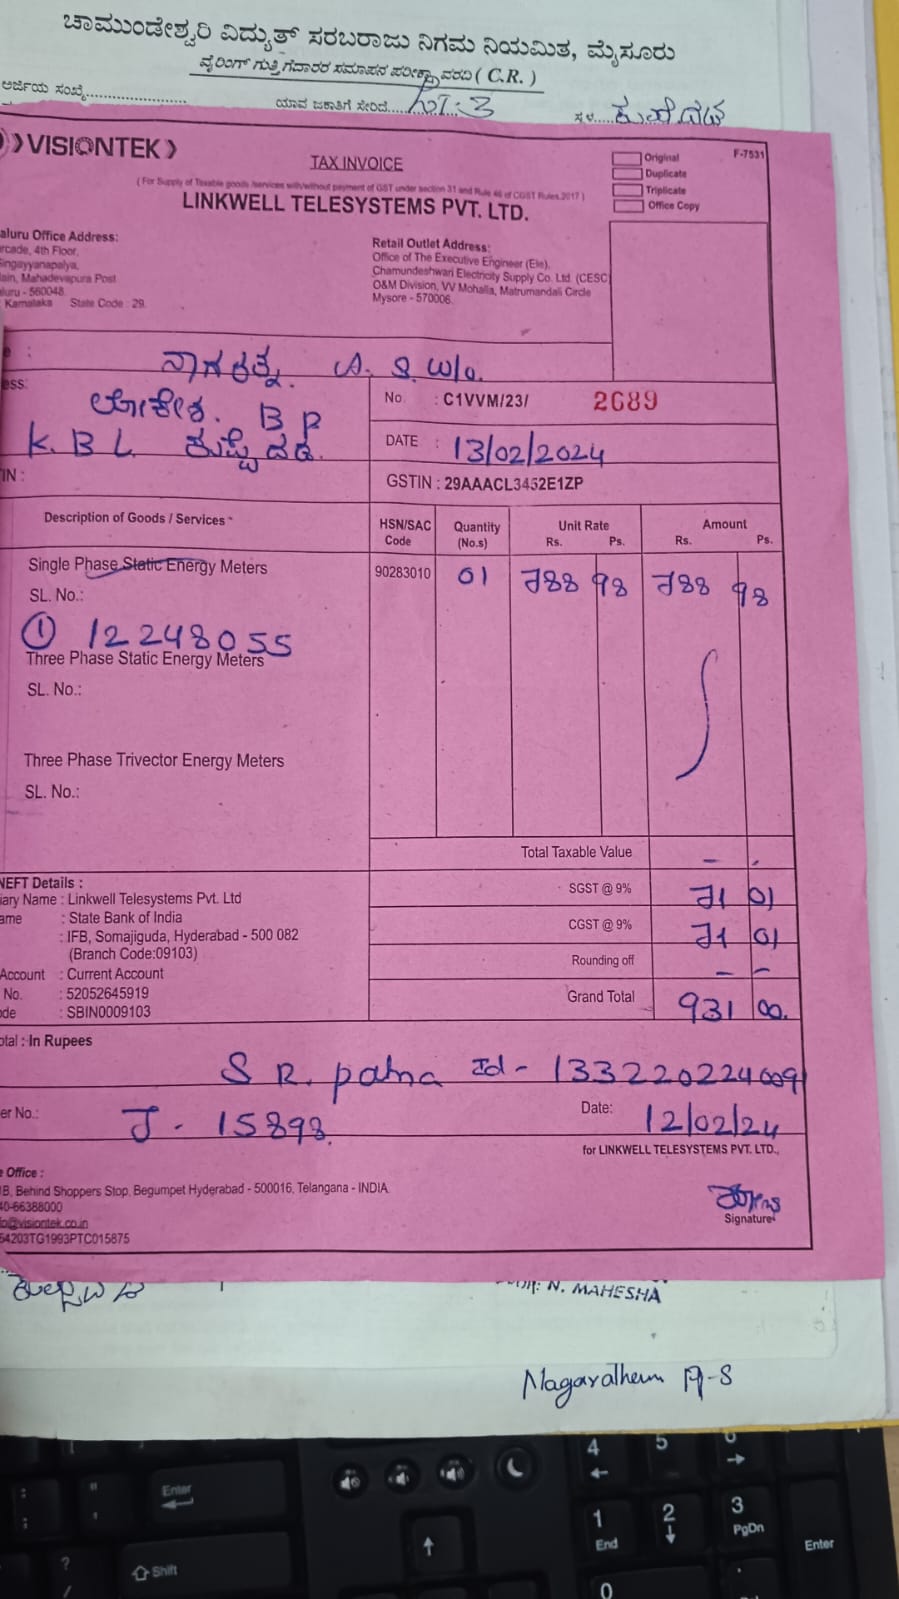 ಚಾಮುಂಡೇಶ್ವರಿ ವಿದ್ಯುತ್ ಸರಬರಾಜು ನಿಗಮ ನಿಯಮಿತ, ಮೈಸೂರು
ವೈರಿಂಗ್ ಗುತ್ತಿಗೆದಾರರ ಸಮಾಪನ ಪರೀಕ್ಷಾ ವರದಿ ( C.R. )
ಅರ್ಜಿಯ ಸಂಖ್ಯೆ........................ ಯಾವ ಜಕಾತಿಗೆ ಸೇರಿದೆ............ ಸ್ಥಳ.....
VISIONTEK
TAX INVOICE
Original
F-7531
Duplicate
Triplicate
Office Copy
( For Supply of Taxable goods /services with/without payment of GST under section 31 and Rule 46 of CGST Rules,2017 )
LINKWELL TELESYSTEMS PVT. LTD.
aluru Office Address:
rcade, 4th Floor,
ingayyanapalya,
ain, Mahadevapura Post
aluru - 560048.
Karnataka State Code : 29.
Retail Outlet Address:
Office of The Executive Engineer (Ele),
Chamundeshwari Electricity Supply Co. Ltd. (CESC
O&M Division, VV Mohalla, Matrumandali Circle
Mysore - 570006.
e : ನಾಗರತ್ನ. A. S. W/o.
ess: ಲೋಕೇಶ. B P
K. B L.
IN :
No. : C1VVM/23/ 2689
DATE : 13/02/2024
GSTIN : 29AAACL3452E1ZP
Description of Goods / Services HSN/SAC Code Quantity (No.s) Unit Rate Rs. Ps. Amount Rs. Ps.
Single Phase Static Energy Meters 90283010 01 788 98 788 98
SL. No.:
① 12248055
Three Phase Static Energy Meters
SL. No.:
Three Phase Trivector Energy Meters
SL. No.:
Total Taxable Value - -
SGST @ 9% 71 01
CGST @ 9% 71 01
Rounding off - -
Grand Total 931 00.
NEFT Details :
iary Name : Linkwell Telesystems Pvt. Ltd
ame : State Bank of India
: IFB, Somajiguda, Hyderabad - 500 082
(Branch Code:09103)
Account : Current Account
No. : 52052645919
ode : SBIN0009103
otal : In Rupees
S R. patna Id - 133220224009
er No.: J - 15898. Date: 12/02/24
for LINKWELL TELESYSTEMS PVT. LTD.,
e Office :
B, Behind Shoppers Stop, Begumpet Hyderabad - 500016, Telangana - INDIA
40-66388000
fo@visiontek.co.in
64203TG1993PTC015875
Signature
N. MAHESHA
A-S
Enter
Shift
4
5
6
1
End
2
3
PgDn
Enter
0